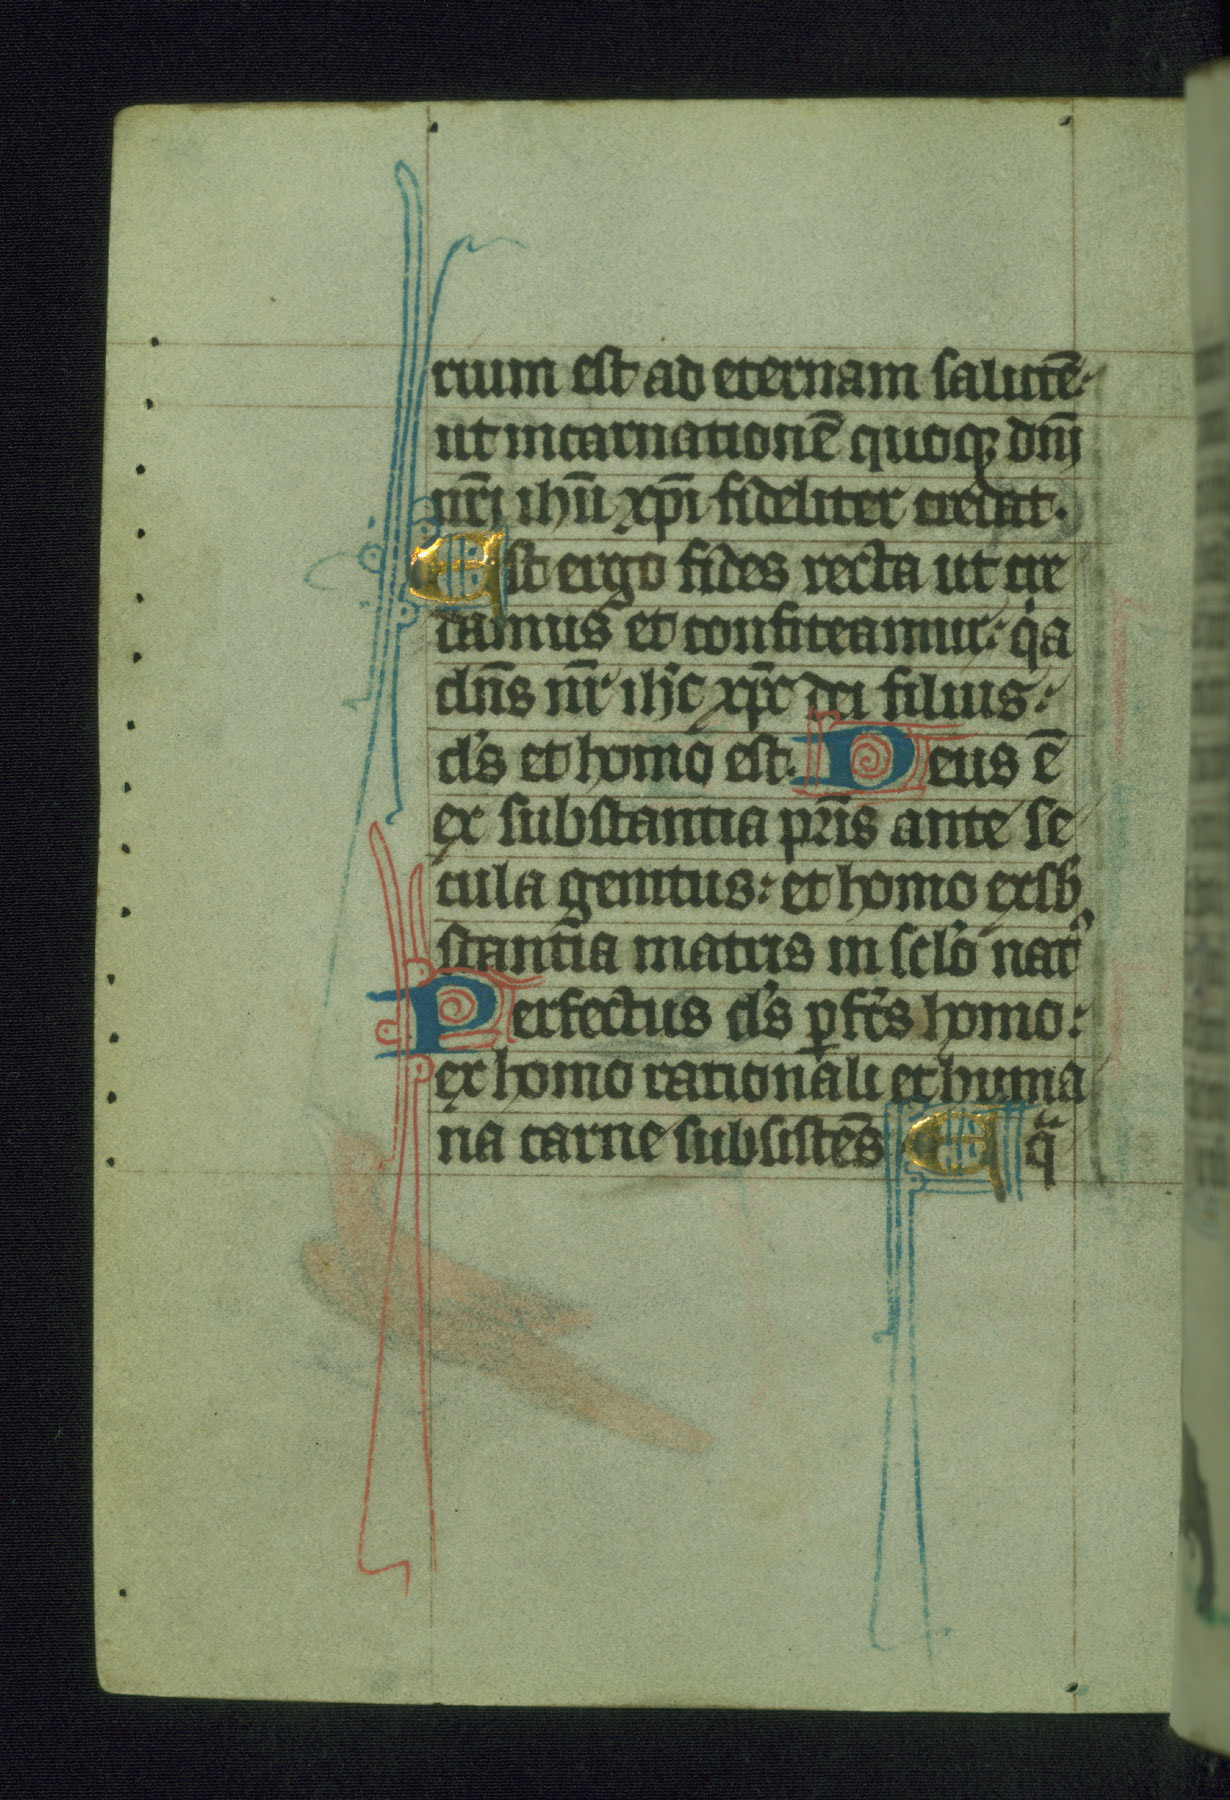 rium est ad eternam salutē·
ut incarnationē quoq₃ dn̄i
nr̄i ihū xp̄i fideliter credat·
Est ergo fides recta ut cre
damus et confiteamur: qia
dn̄s nr̄ ihc̄ xp̄c dei filius:
ds et homo est· Deus ē
ex substantia pr̄is ante se
cula genitus: et homo ex sb
stantia matris in sclo nat
Perfectus ds p̱fcs homo:
ex homo rationali et huma
na carne subsistēs Eq̄